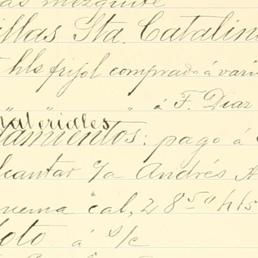 as mezquite
illas Sta. Catalin
hls frijol comprado á vari
" " " á F. Diaz
Materiales
amientos: pago á
lcantar %a Andrés A
uema cal, 28 50 hls
oto á s/c